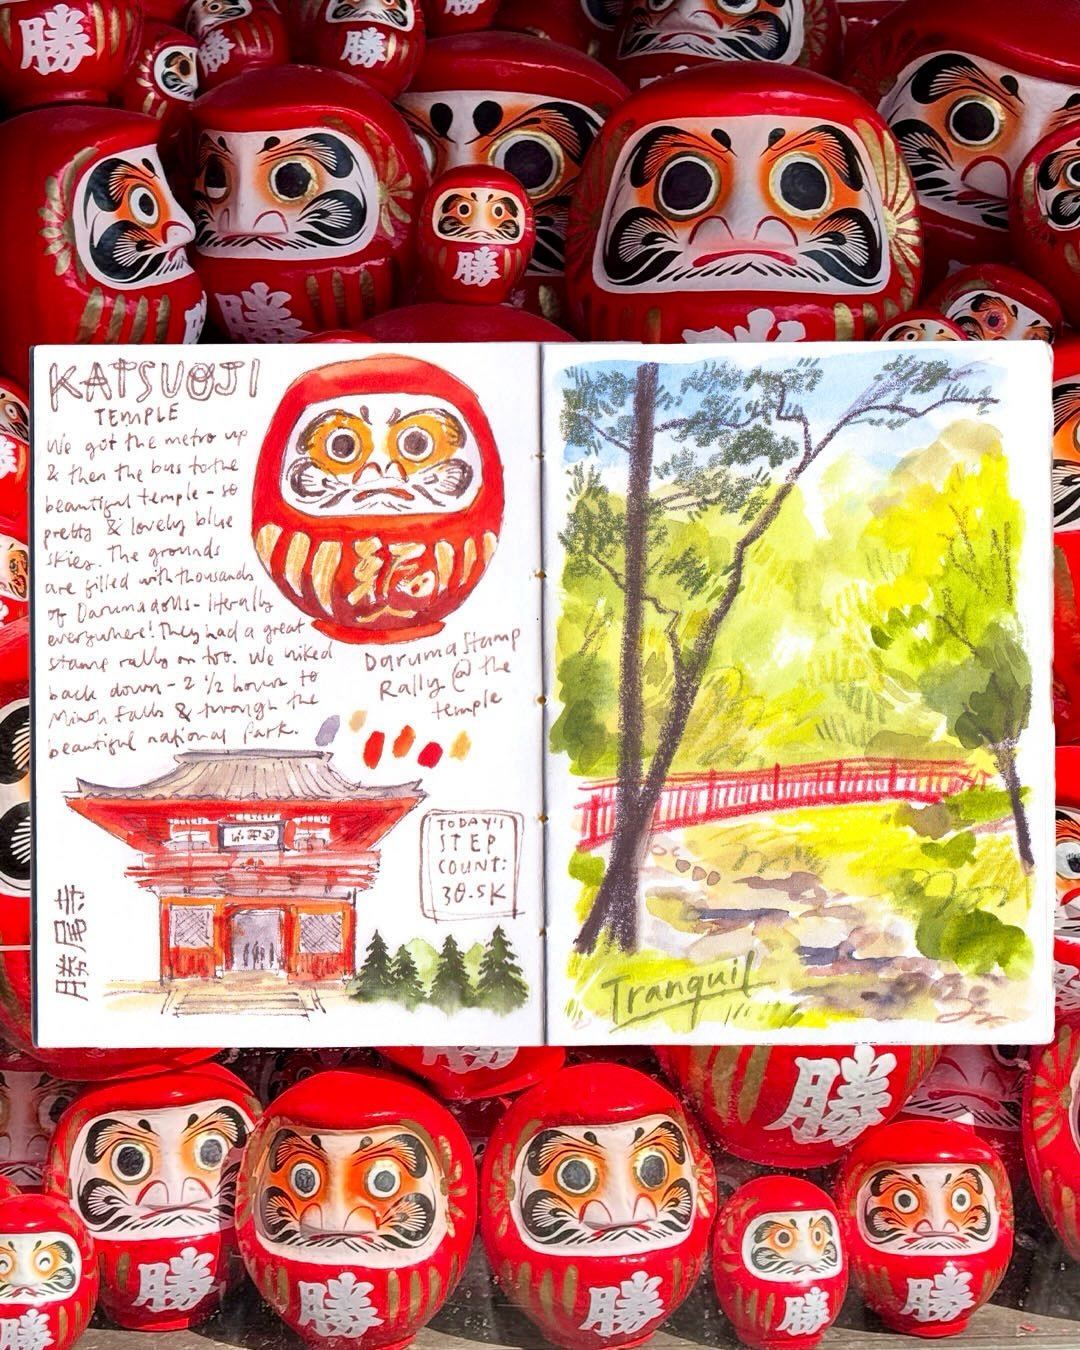 勝
勝
勝
勝
KATSUOJI
TEMPLE
We got the metro up
& then the bus to the
beautiful temple - so
pretty & lovely blue
skies. The grounds
are filled with thousands
of Daruma dolls - literally
everywhere! They had a great
stamp rally on too. We hiked
back down - 2 1/2 hours to
Minoh Falls & through the
beautiful national Park.
Daruma Stamp
Rally @ the
temple
TODAY'S
STEP
COUNT:
30.5K
勝尾寺
Tranquil
勝
勝
勝
勝
勝
勝
勝